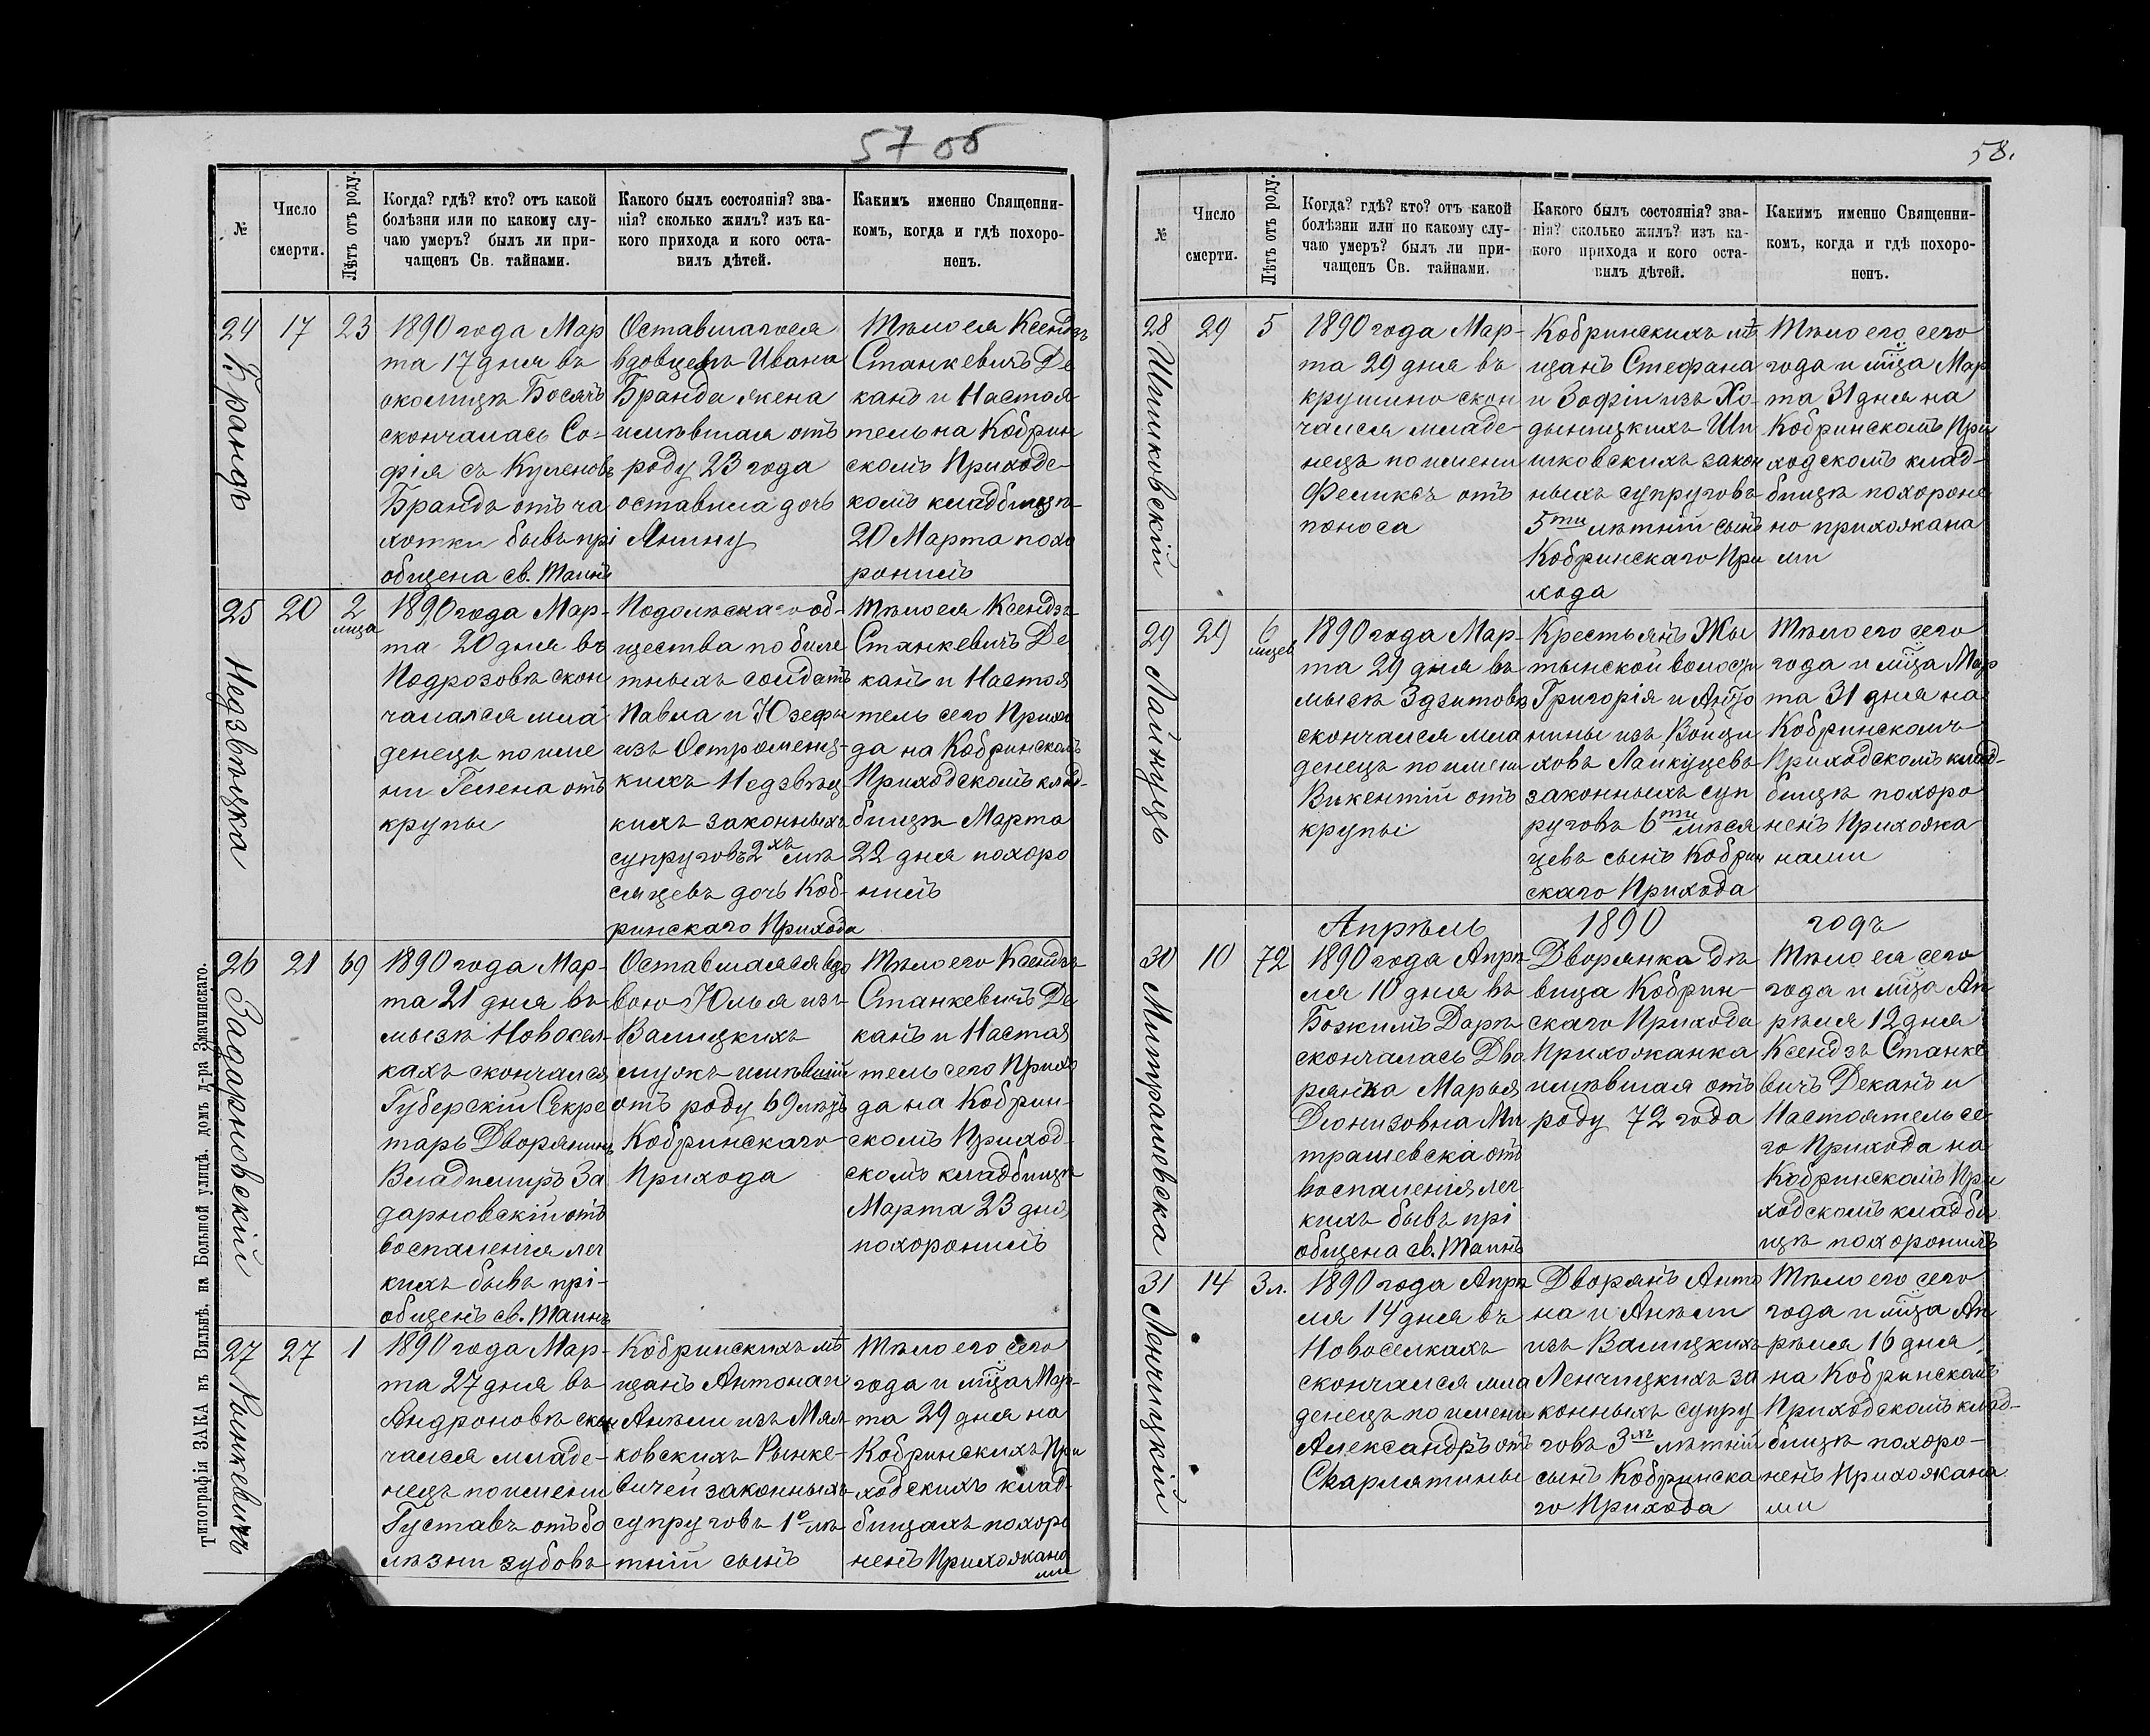 57 об
№
Число
смерти.
Лѣтъ отъ роду.
Когда? гдѣ? кто? отъ какой
болѣзни или по какому слу-
чаю умеръ? былъ ли при-
чащенъ Св. тайнами.
Какого былъ состоянія? зва-
нія? сколько жилъ? изъ ка-
кого прихода и кого оста-
вилъ дѣтей.
Какимъ именно Священни-
комъ, когда и гдѣ похоро-
ненъ.
24
Брандъ
17
23
1890 года Мар
та 17 дня въ
околицѣ Босячъ
скончалась Со-
фія съ Куленовъ
Брандъ отъ ча
хотки бывъ прі
общена св. Таинъ
Оставшагося
вдовцемъ Ивана
Бранда жена
имѣвшая отъ
роду 23 года
оставила дочь
Янину
Тѣло ея Ксендзъ
Станкевичъ Де
канъ и Настоя
тель на Кобрин
скомъ Приходс-
комъ кладбищѣ
20 Марта похо
ронилъ
25
Недзвѣцка
20
2
мѣца
1890 года Мар-
та 20 дня въ
Подрозовѣ скон
чалася мла
денецъ по име
ни Гелена отъ
крупы
Подолѣскаго об-
щества по биле
тныхъ солдатъ
Павла и Юзефы
изъ Остроменц-
кихъ Недзвѣц-
кихъ законныхъ
супруговъ 2хъ мѣ
сяцевъ дочь Коб-
ринскаго Прихода
Тѣло ея Ксендзъ
Станкевичъ Де
канъ и Настоя
тель сего Прихо
да на Кобринскомъ
Приходскомъ клад-
бищѣ Марта
22 дня похоро
нилъ
26
Задарновскій
21
69
1890 года Мар-
та 21 дня въ
мызѣ Новосел-
кахъ скончался
Губерскій Секре
тарь Дворянинъ
Владимиръ За
дарновскій отъ
воспаленія лег
кихъ бывъ прі-
общенъ св. Таинъ
Оставшаяся вдо
вою Юлья изъ
Валицкихъ
мужъ имѣвшій
отъ роду 69 лѣтъ
Кобринскаго
Прихода
Тѣло его Ксендзъ
Станкевичъ Де
канъ и Настоя
тель сего Прихо
да на Кобрин-
скомъ Приход-
скомъ кладбищѣ
Марта 23 дня
похоронилъ
27
Рынкевичъ
27
1
1890 года Мар-
та 27 дня въ
Андроновѣ скон
чался младе-
нецъ по имени
Густавъ отъ бо
лѣзни зубовъ
Кобринскихъ мѣ
щанъ Антона и
Анѣли изъ Мал
ковскихъ Рынке-
вичей законныхъ
супруговъ 1о лѣ
тній сынъ
Тѣло его сего
года и мѣца Мар-
та 29 дня на
Кобринскихъ При
ходскихъ клад-
бищахъ похоро
ненъ Прихожана
ми
Типографія ЗАКА въ Вильнѣ, на Большой улицѣ, домъ д-ра Змачинскаго.
58.
№
Число
смерти.
Лѣтъ отъ роду.
Когда? гдѣ? кто? отъ какой
болѣзни или по какому слу-
чаю умеръ? былъ ли при-
чащенъ Св. тайнами.
Какого былъ состоянія? зва-
нія? сколько жилъ? изъ ка-
кого прихода и кого оста-
вилъ дѣтей.
Какимъ именно Священни-
комъ, когда и гдѣ похоро-
ненъ.
28
Шишковскій
29
5
1890 года Мар-
та 29 дня въ
крушино скон
чался младе
нецъ по имени
Феликсъ отъ
поноса
Кобринскихъ мѣ
щанъ Стефана
и Зофіи изъ Хо-
дыницкихъ Ши
шковскихъ закон
ныхъ супруговъ
5ти лѣтній сынъ
Кобринскаго При
хода
Тѣло его сего
года и мѣца Мар
та 31 дня на
Кобринскомъ При
ходскомъ клад-
бищѣ похороне
но прихожана
ми
29
Лайкуцъ
29
6
мѣцев
1890 года Мар-
та 29 дня въ
мызѣ Здзитовѣ
скончался мла
денецъ по имени
Викентій отъ
крупы
Крестьянъ Жы
тынской волости
Григорія и Анто
нины изъ Войци
ховъ Лайкуцевъ
законныхъ суп
руговъ 6ти мѣся
цевъ сынъ Кобрин
скаго Прихода
Тѣло его сего
года и мѣца Мар
та 31 дня на
Кобринскомъ
Приходскомъ клад-
бищѣ похоро
ненъ Прихожа
нами
Апрѣль 1890 годъ
30
Митрашевска
10
72
1890 года Апрѣ
ля 10 дня въ
Божимъ Дарѣ
скончалась Дво
рянка Марья
Діонизовна Ми
трашевска отъ
воспаленія лег
кихъ бывъ прі
общена св. Таинъ
Дворянка дѣ
вица Кобрин-
скаго Прихода
Прихожанка
имѣвшая отъ
роду 72 года
Тѣло ея сего
года и мѣца Ап
рѣля 12 дня
Ксендзъ Станке
вичъ Деканъ и
Настоятель се
го Прихода на
Кобринскомъ При
ходскомъ кладби
щѣ похоронилъ
31
Ленчицкій
14
3 л.
1890 года Апрѣ
ля 14 дня въ
Новоселкахъ
скончался мла
денецъ по имени
Александръ отъ
Скарлятины
Дворянъ Анто
на и Анѣли
изъ Валицкихъ
Ленчицкихъ за
конныхъ супру
говъ 3хъ лѣтній
сынъ Кобринска
го Прихода
Тѣло его сего
года и мѣца Ап
рѣля 16 дня
на Кобринскомъ
Приходскомъ клад-
бищѣ похоро-
ненъ Прихожана
ми